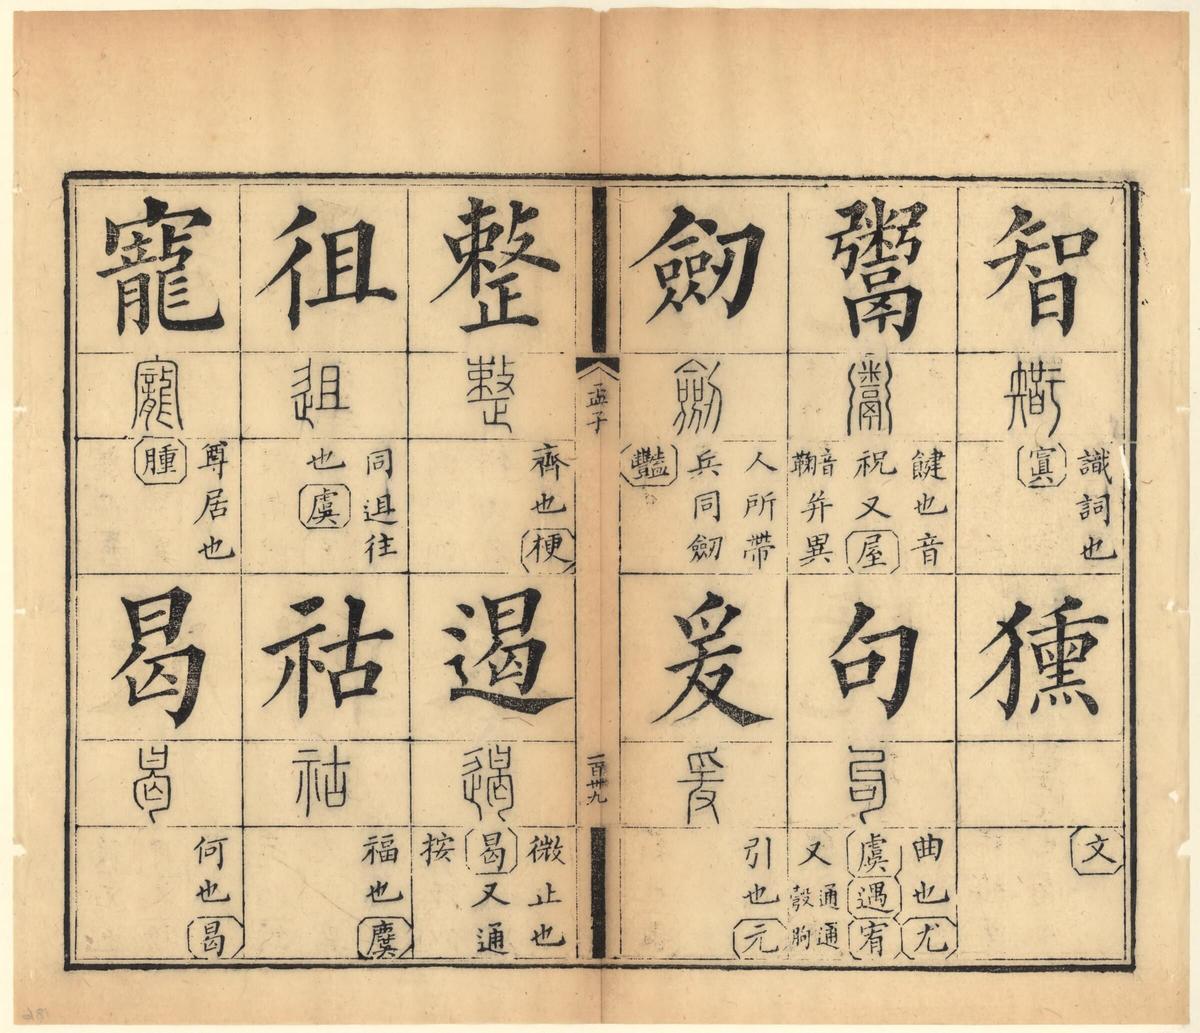 智
識詞也
寘
獯
文
鬻
鍵也音
祝又屋
音鞠并異
句
曲也尤
虞遇宥
又通彀通朐
劒
人所帶
兵同劒
豔
爰
引也元
孟子
一百卅九
整
齊也梗
遏
微止也
曷又通
按
徂
同𨑢往
也虞
祜
福也麌
寵
尊居也
腫
曷
何也曷